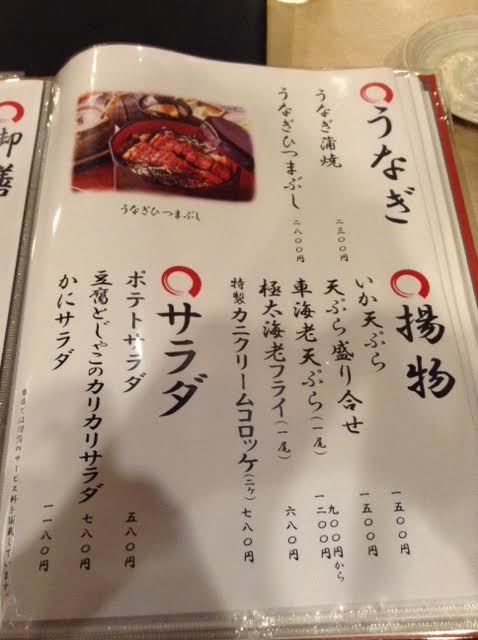 うなぎ
うなぎ蒲焼 二三〇〇円
うなぎひつまぶし 二八〇〇円
うなぎひつまぶし
揚物
いか天ぷら 一五〇〇円
天ぷら盛り合せ 一五〇〇円
車海老天ぷら(一尾) 九〇〇円から
一二〇〇円
極太海老フライ(一尾) 六八〇円
特製カニクリームコロッケ(二ヶ) 七八〇円
サラダ
ポテトサラダ 五八〇円
豆腐とじゃこのカリカリサラダ 七八〇円
かにサラダ 一一八〇円
当店では10%のサービス料を頂戴しています。
御膳